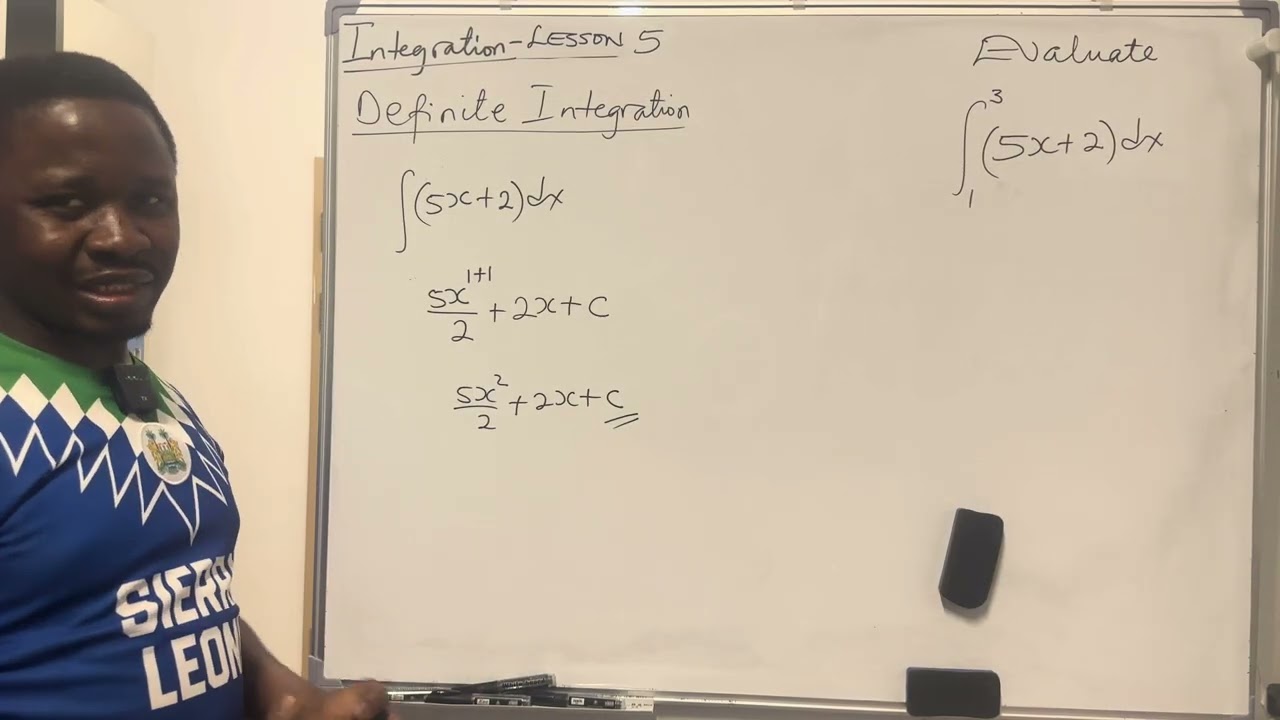 Integration-LESSON 5
Definite Integration
∫(5x+2)dx
5x^{1+1}/2 + 2x + C
5x^2/2 + 2x + C
Evaluate
∫_1^3 (5x+2)dx
SIERRA
LEON